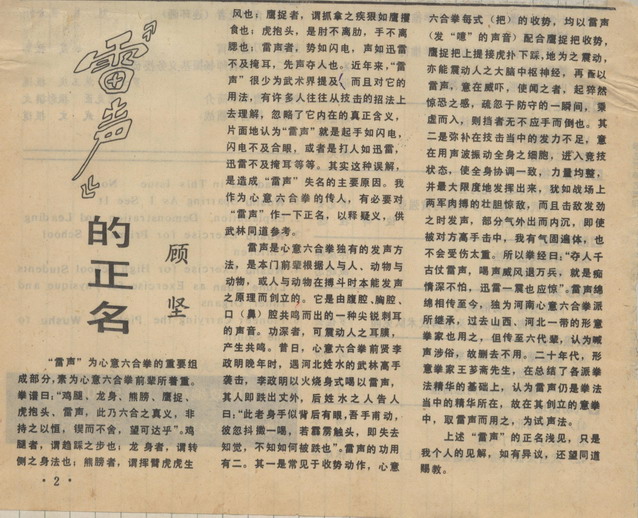 『雷声』
的正名
顾坚
“雷声”为心意六合拳的重要组
成部分，素为六合拳前辈所着重。
拳谱曰：“鸡腿、龙身、熊膀、鹰捉、
虎抱头、雷声，此乃六合之真义，非
持之以恒，锲而不舍，望可达乎”。鸡
腿者，谓趋踩之步也；龙身者，谓转
侧之身法也；熊膀者，谓挥臂虎虎生
风也；鹰捉者，谓抓拿之疾狠如鹰攫
食也；虎抱头，是肘不离肋，手不离
腮也；雷声者，势如闪电，声如迅雷
不及掩耳，先声夺人也。近年来，“雷
声”很少为武术界提及，而且对它的
用法，有许多人往往从技击的招法上
去理解，忽略了它内在的真正含义，
片面地认为“雷声”就是起手如闪电，
闪电不及合眼，或者是打人如迅雷，
迅雷不及掩耳等等。其实这种误解，
是造成“雷声”失名的主要原因。我
作为心意六合拳的传人，有必要对
“雷声”作一下正名，以释疑义，供
武林同道参考。
雷声是心意六合拳独有的发声方
法，是本门前辈根据人与人、动物与
动物，或人与动物在搏斗时本能发声
之原理而创立的。它是由腹腔、胸腔、
口（鼻）腔共鸣而出的一种尖锐刺耳
的声音。功深者，可震动人之耳膜，
产生共鸣。昔日，心意六合拳前贤李
政明晚年时，遇河北姓水的武林高手
袭击，李政明以火烧身式喝以雷声，
其人即跌出丈外，后姓水之人告人
曰：“此老身手似背后有眼，吾手甫动，
彼忽抖擞一喝，若霹雳触头，即失去
知觉，不知如何被跌也”。雷声的功用
有二。其一是常见于收势动作，心意
六合拳每式（把）的收势，均以雷声
（发“噫”的声音）配合鹰捉把收势，
鹰捉把上提接虎扑下踩，地为之震动，
亦能震动人之大脑中枢神经，再酝以
雷声，意在威吓，使闻之者，起猝然
惊恐之感，疏忽于防守的一瞬间，乘
虚而入，则挡者无不应手而倒也。其
二是弥补在技击当中的发力不足，意
在用声波振动全身之细胞，进入竞技
状态，使全身协调一致，力量均整，
并最大限度地发挥出来，犹如战场上
两军肉搏的壮胆惊敌，而且击敌发劲
之时发声，部分气外出而内沉，即使
被对方高手击中，我有气固遍体，也
不会受伤太重。所以拳经曰：“夺人千
古仗雷声，喝声威风退万兵，就是痴
情深不怕，迅雷一震也应惊”。雷声绵
绵相传至今，独为河南心意六合拳派
所继承，过去山西、河北一带的形意
拳家也用之，但传至六代辈，认为喊
声涉俗，故删去不用。二十年代，形
意拳家王芗斋先生，在总结了各派拳
法精华的基础上，认为雷声仍是拳法
当中的精华所在，故在其创立的意拳
中，取雷声而用之，为试声法。
上述“雷声”的正名浅见，只是
我个人的见解，如有异议，还望同道
赐教。
·2·